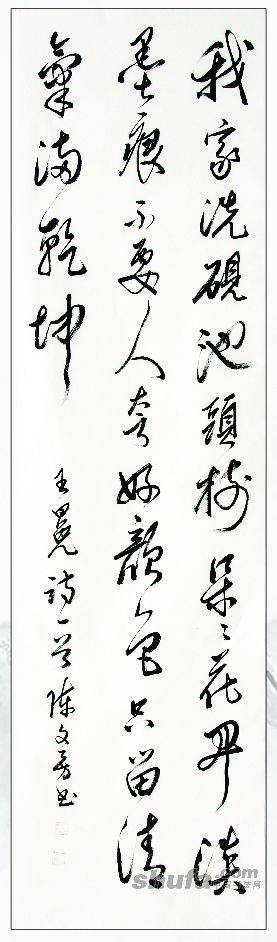 我家洗硯池頭樹朵々花開淡
墨痕不要人夸好顏色只留清
氣滿乾坤
王冕詩一首陳文芳書